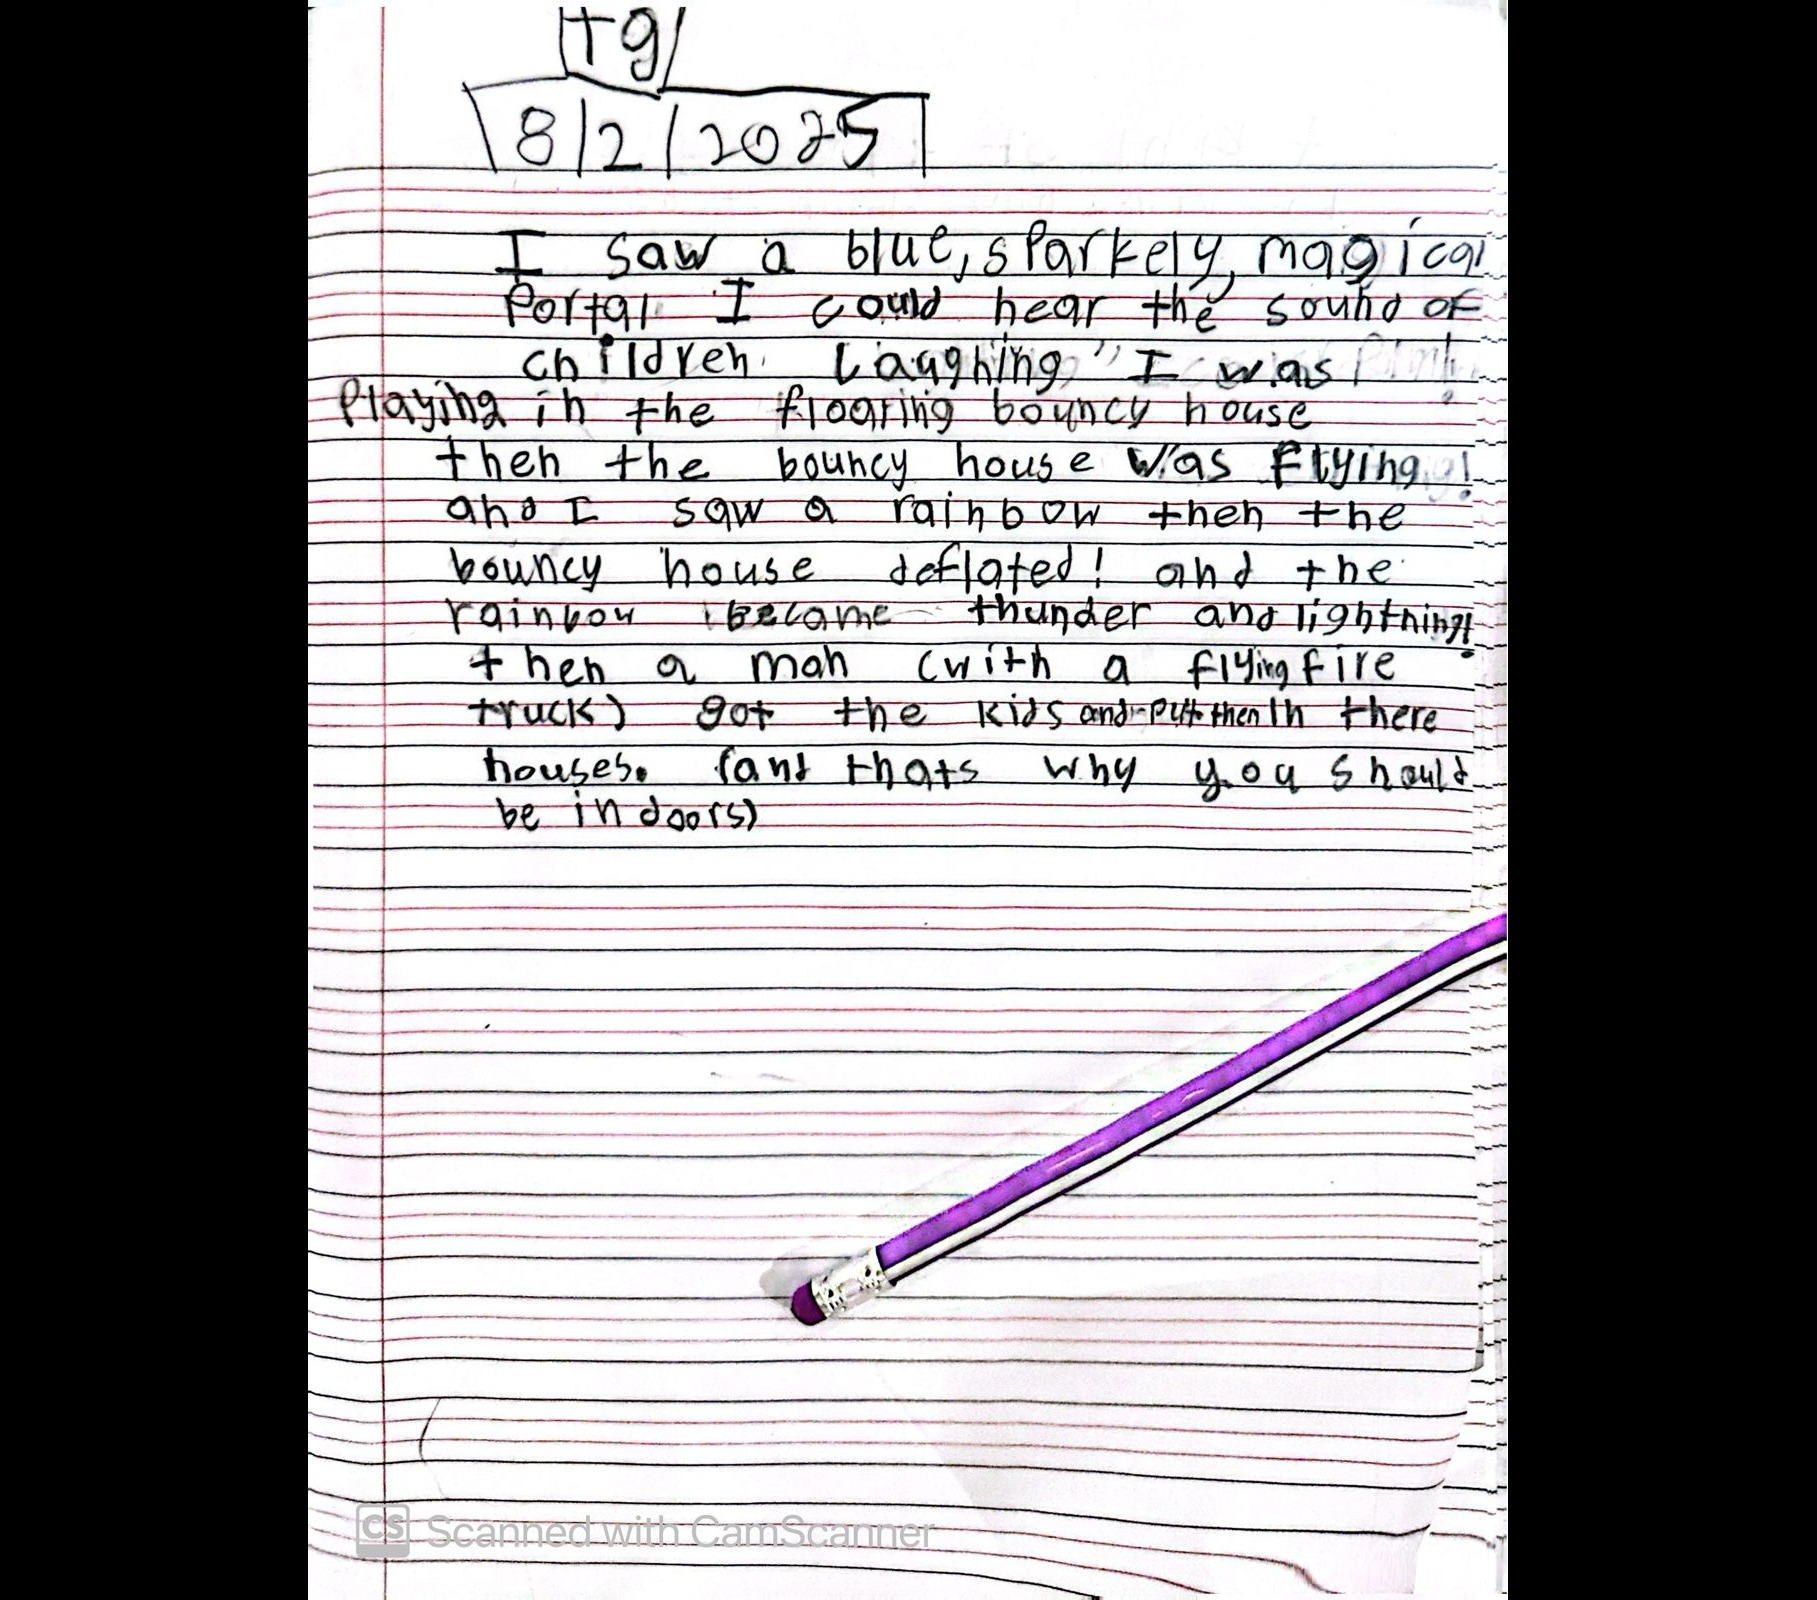 tg
8/2/2025
I saw a blue, sparkely, magical
Portal I could hear the sound of
children Laughing" I was
Playing in the floaring bouncy house
then the bouncy house was flying!
and I saw a rainbow then the
bouncy house deflated! and the
rainbow became thunder and lightning!
then a man (with a flying fire
truck) got the kids and put then In there
houses. (and thats why you should
be in doors)
CS Scanned with CamScanner